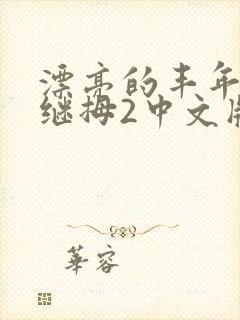 漂亮的丰年
继拇2中文版
華容